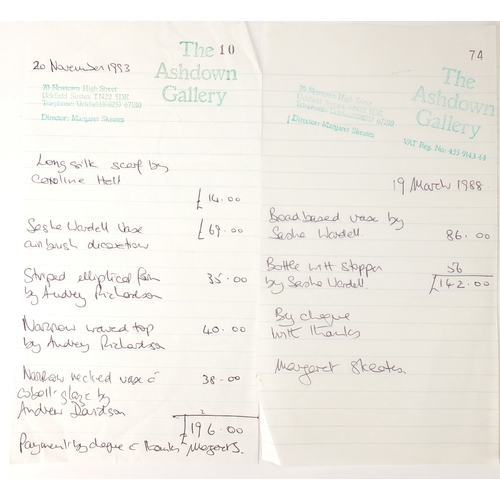 The 10
20 November 1993
Ashdown
Gallery
70 Newtown High Street
Uckfield Sussex TN22 5DE
Director: Margaret Skeates
Long silk scarf by
Caroline Hall
£14.00
Sasha Wardell Vase
airbrush decoration
£69.00
Striped elliptical form
by Audrey Richardson
35.00
Narrow waved top
by Audrey Richardson
40.00
Narrow necked vase c̄
cobalt glaze by
Andrew Davidson
38.00
£196.00
Payment by cheque c̄ thanks Margaret S.
74
The
Ashdown
Gallery
70 Newtown High Street
Director: Margaret Skeates
VAT Reg. No: 435 9143 44
19 March 1988
Broad based vase by
Sasha Wardell.
86.00
Bottle with stopper
by Sasha Wardell.
56
£142.00
By cheque
with thanks
Margaret Skeates